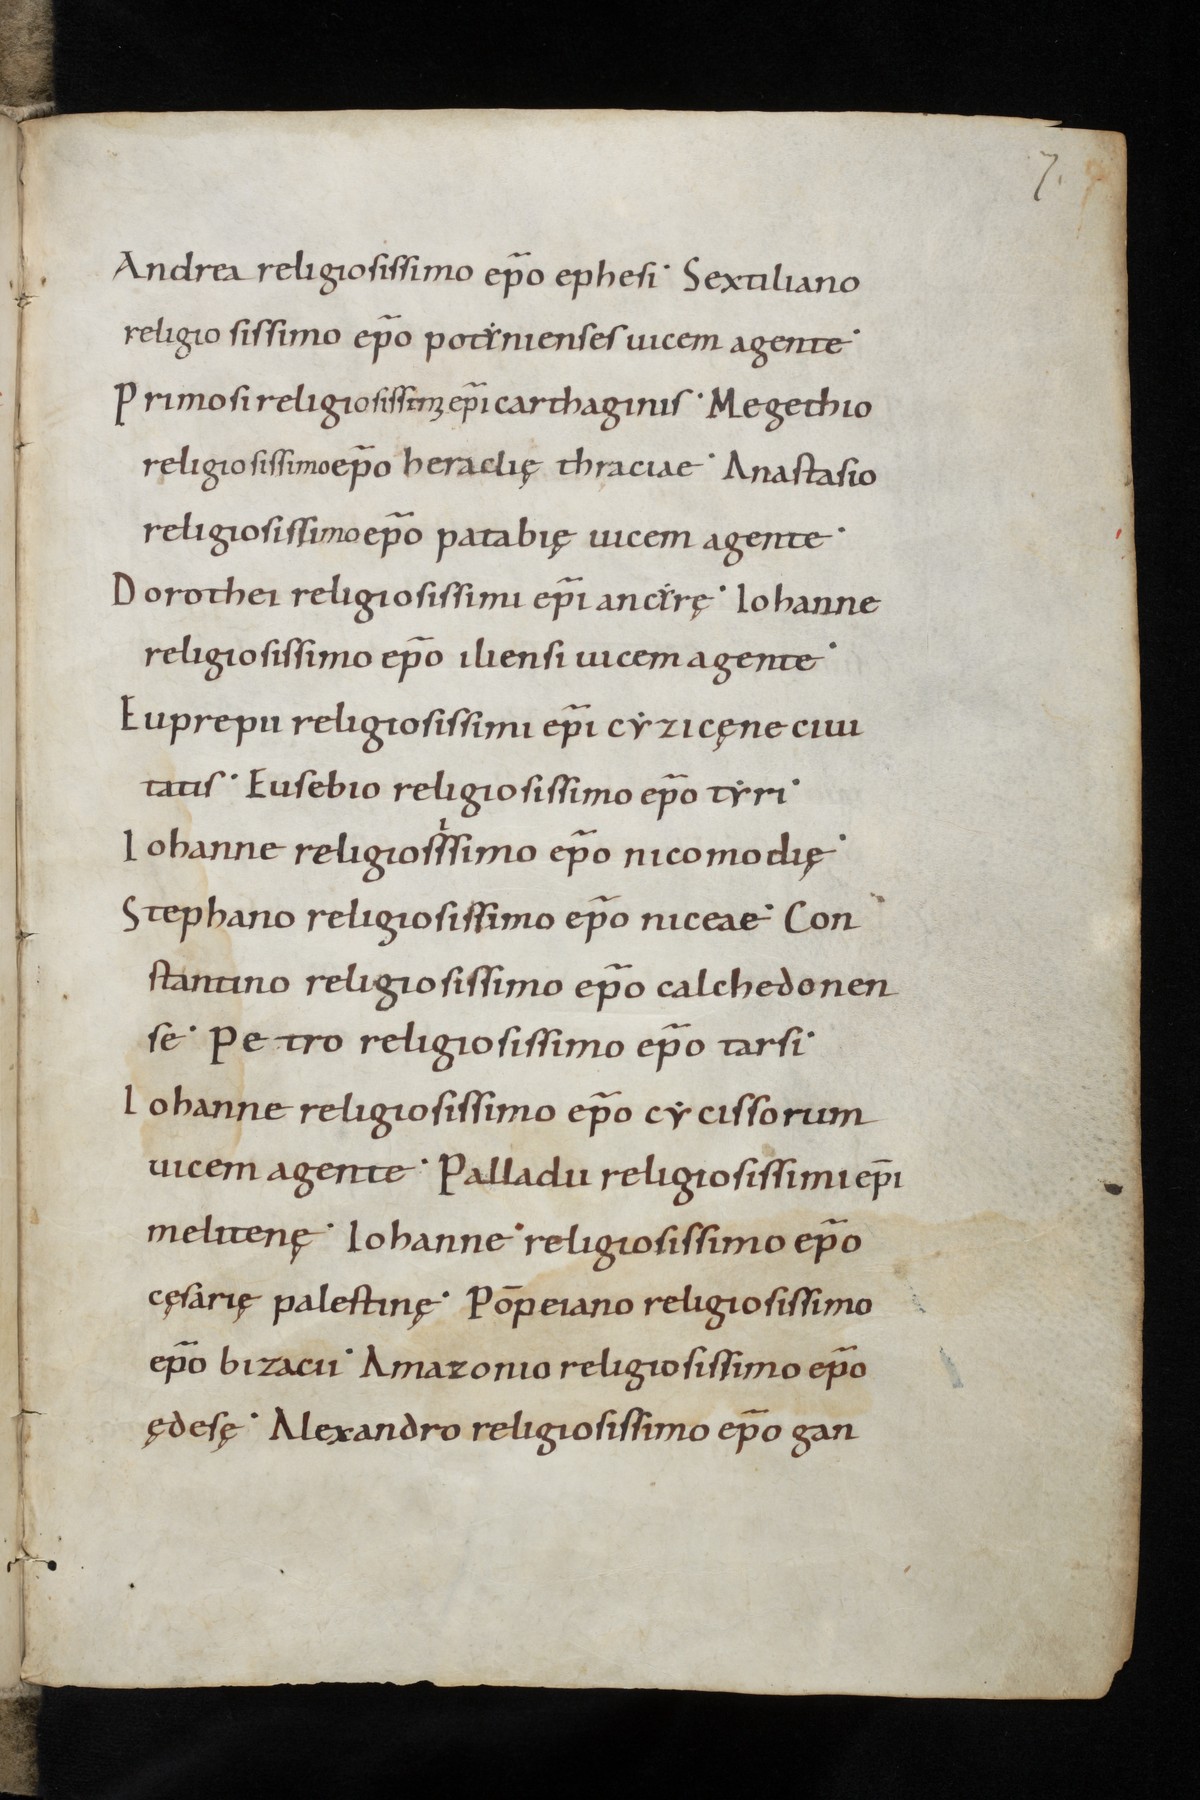 7.
Andrea religiosissimo ep̃o ephesi· Sextiliano
religio sissimo ep̃o potẏnienses uicem agente·
Primosi religiosissim ep̃i carthaginis· Megethio
religiosissimo ep̃o heraclię thraciae· Anastasio
religiosissimo ep̃o patabię uicem agente·
Dorothei religiosissimi ep̃i ancẏrę· Iohanne
religiosissimo ep̃o iliensi uicem agente·
Euprepii religiosissimi ep̃i cẏzicęne ciui
tatis· Eusebio religiosissimo ep̃o tẏri·
Iohanne religiosissimo ep̃o nicomodię·
Stephano religiosissimo ep̃o niceae· Con
stantino religiosissimo ep̃o calchedonen
se· Petro religiosissimo ep̃o tarsi·
Iohanne religiosissimo ep̃o cẏcissorum
uicem agente· Palladii religiosissimi ep̄i
melitenę· Iohanne· religiosissimo ep̃o
cęsarię palestinę· Pōpeiano religiosissimo
ep̃o bizacii· Amazonio religiosissimo ep̃o
ędesę· Alexandro religiosissimo ep̄o gan